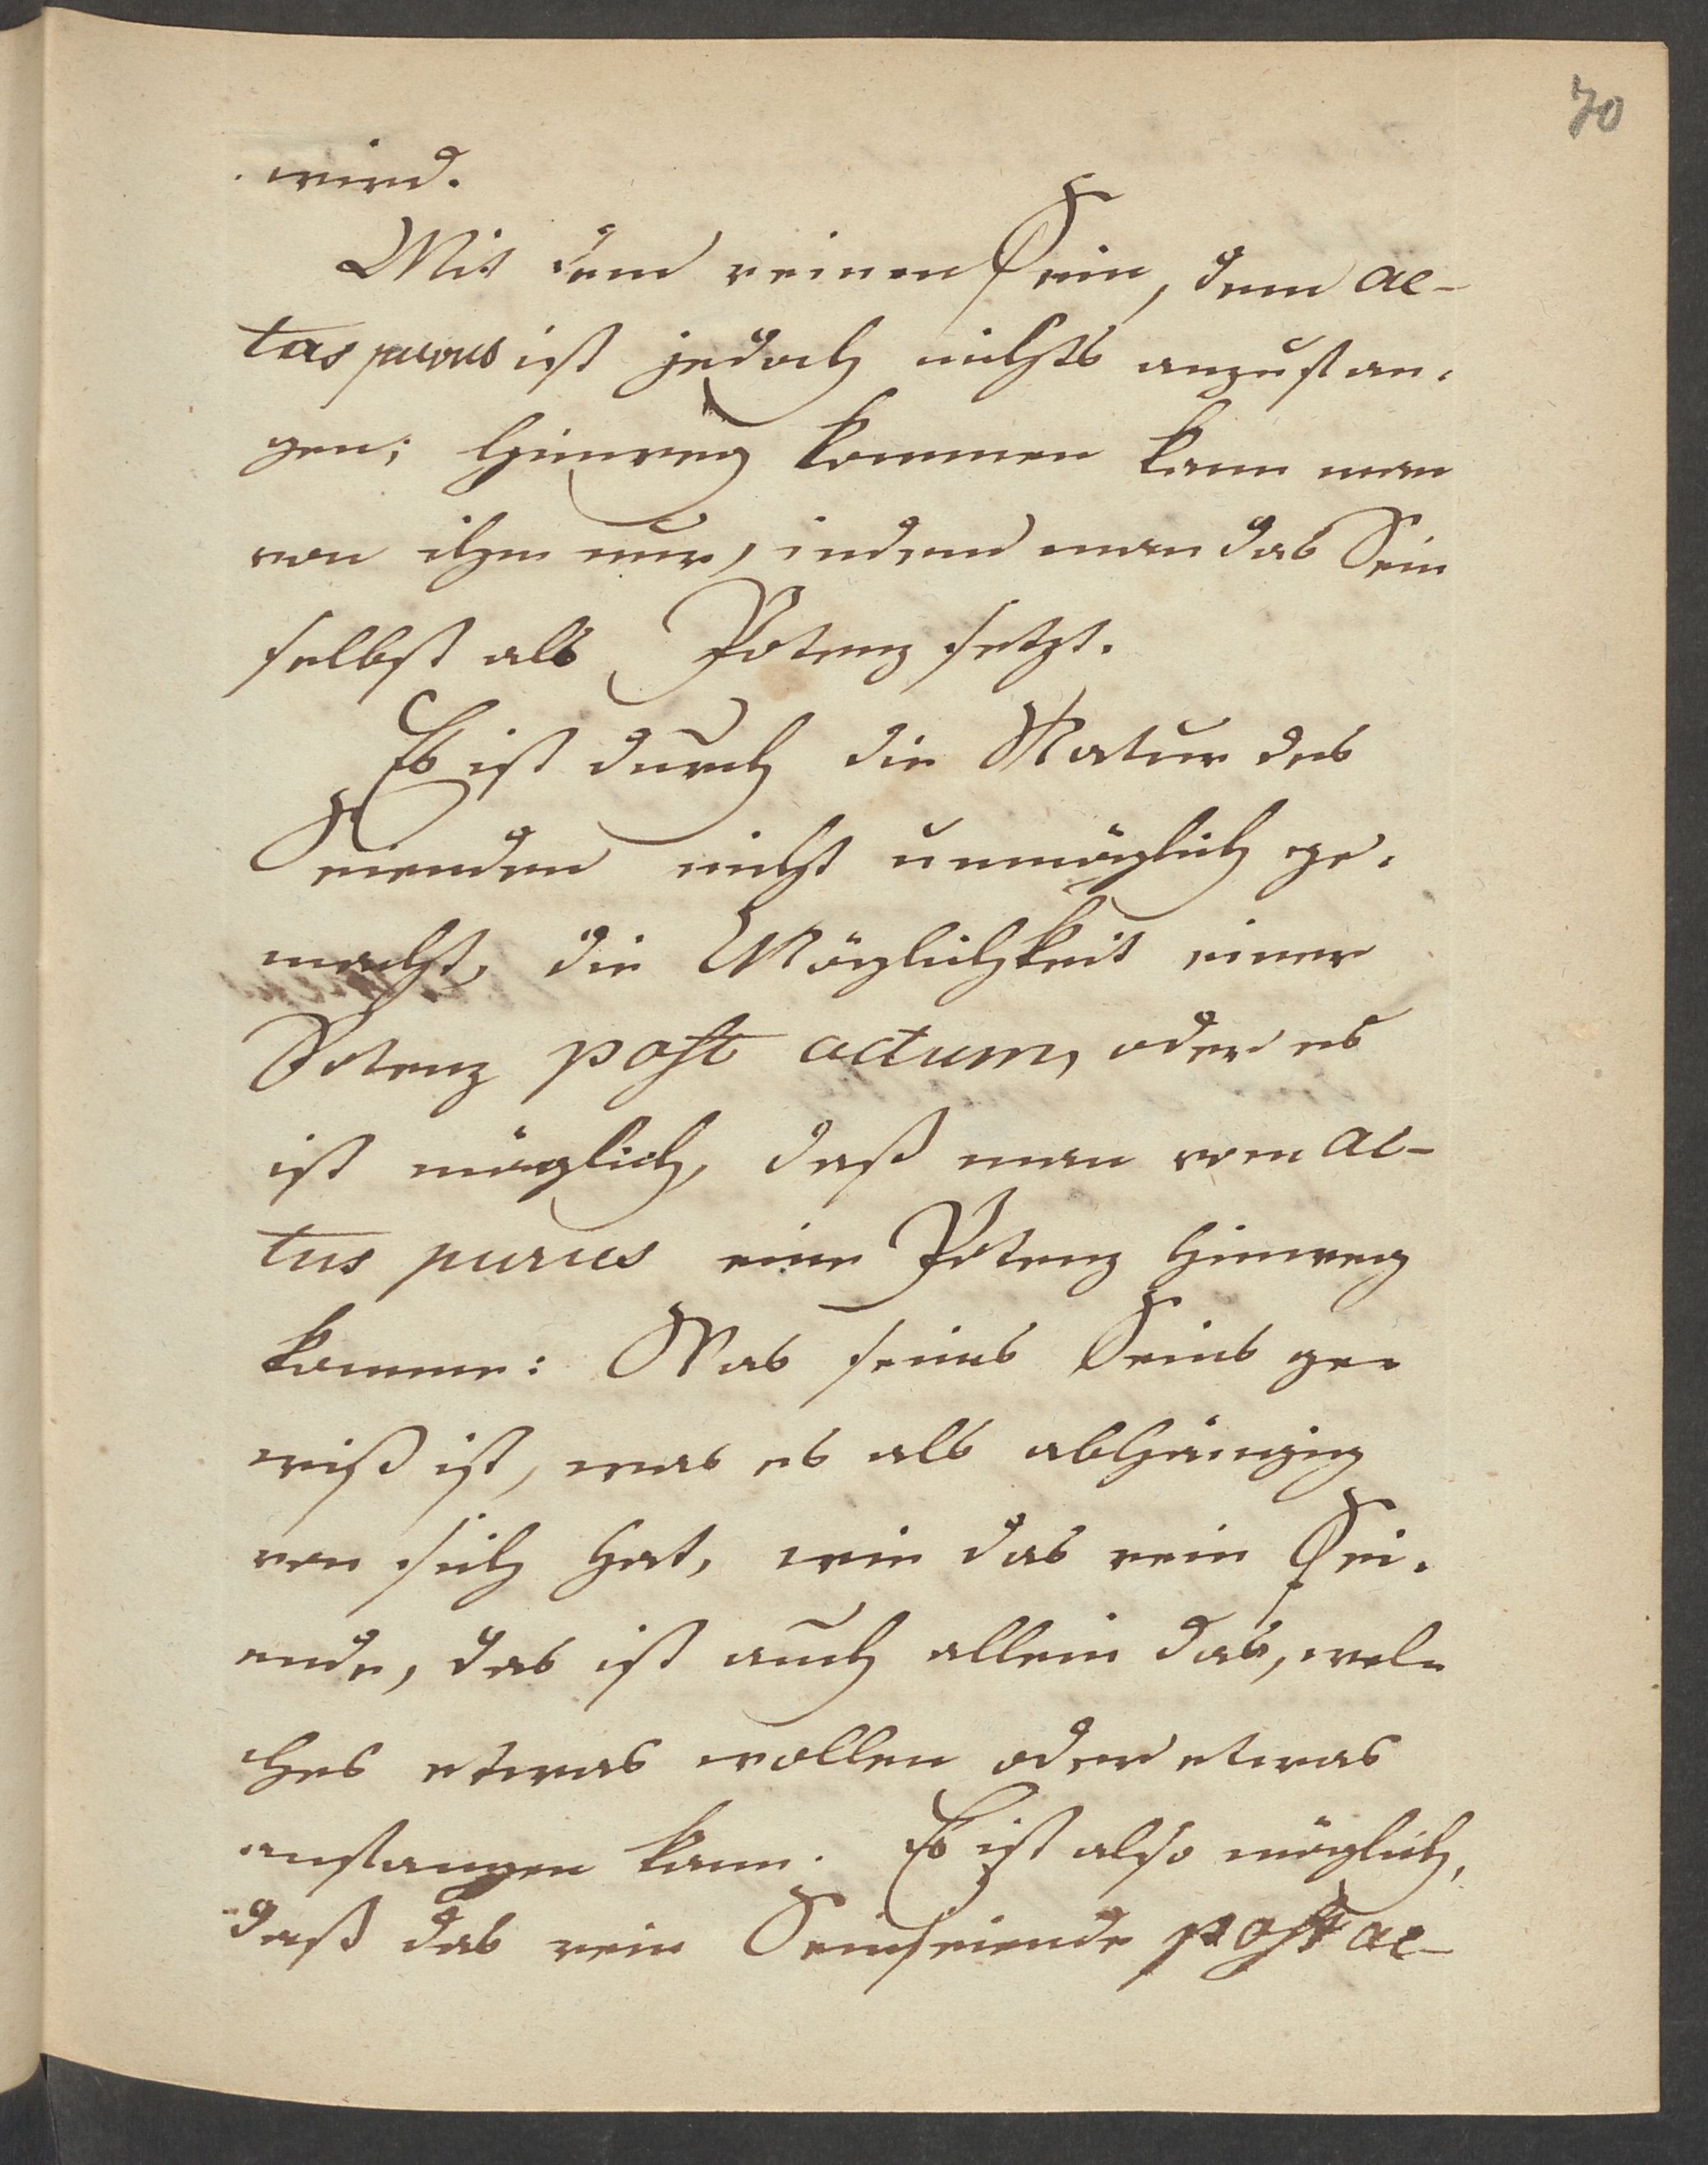 70
wird.
Mit dem reinen Sein, dem ac-
tus purus ist jedoch nichts anzustan-
gen; hinweg kommen kann man
von ihm nur, indem man das Sein
selbst als Potenz setzt.
Es ist durch die Natur des
Seienden nicht unmöglich ge-
macht, die Möglichkeit einer
Potenz post actum, oder es
ist möglich, daß man vom ac-
tus purus eine Potenz hinweg
komme: Was seines Seins ge-
wiß ist, was es als abhängig
von sich hat, wie das rein Sei-
ende, das ist auch allein das, wel-
ches etwas wollen oder etwas
anstangen kann. Es ist also möglich,
daß das rein Seinseiende post ac-